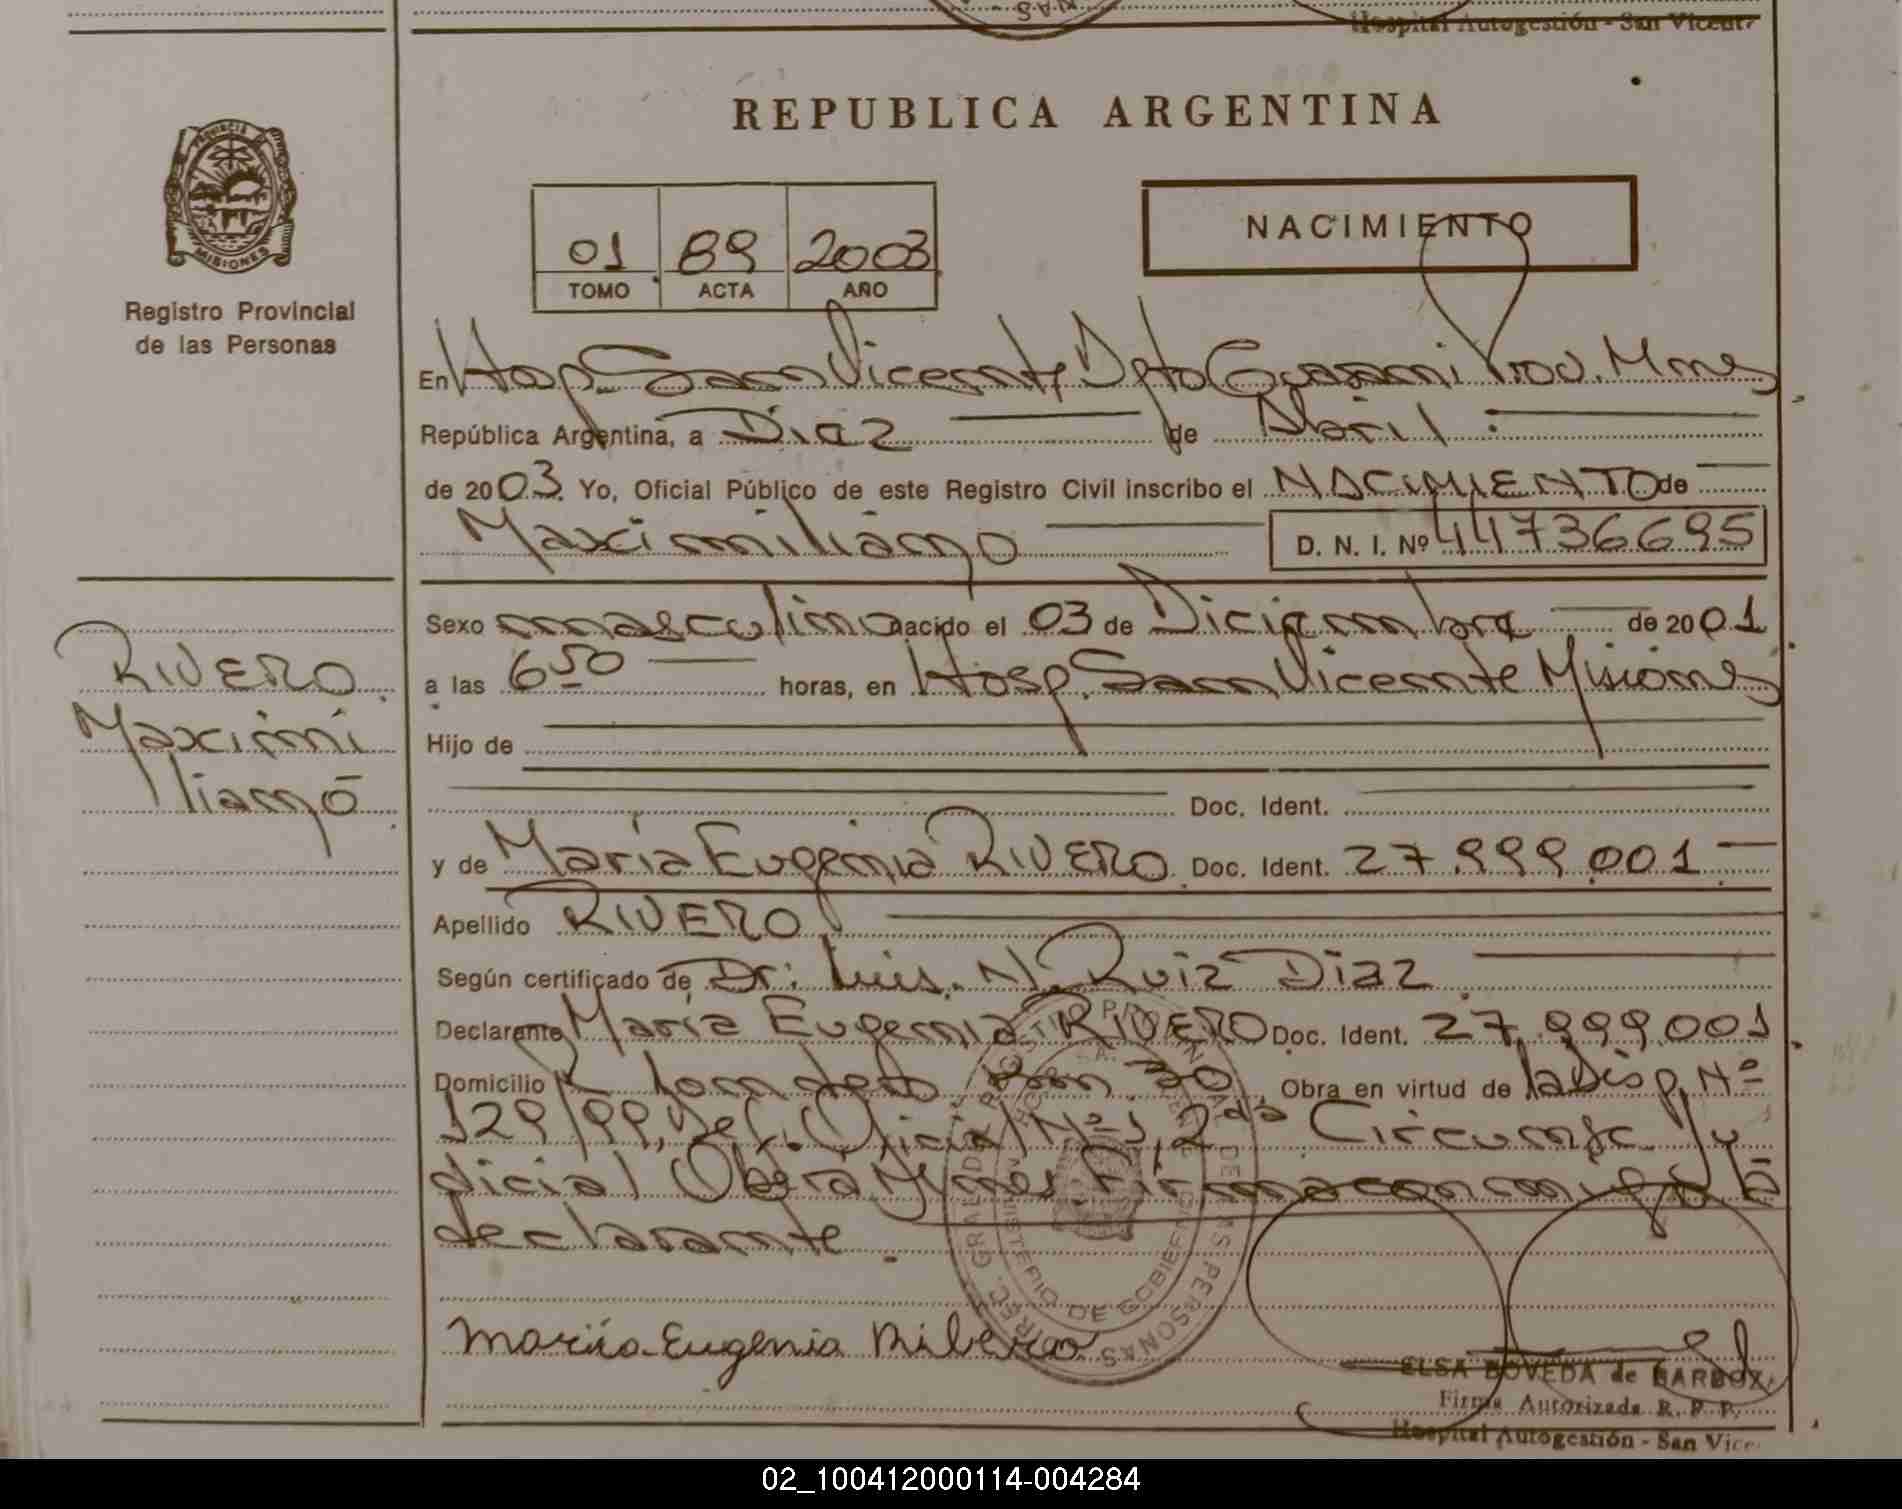 Hospital Autogestión - San Vicente
REPUBLICA ARGENTINA
PROVINCIA
MISIONES
Registro Provincial
de las Personas
01 89 2003
TOMO ACTA AÑO
NACIMIENTO
En Hosp. San Vicente Dpto Guarani Prov. Mnes
República Argentina, a Diaz de Abril
de 2003. Yo, Oficial Público de este Registro Civil inscribo el NACIMIENTO de
Maximiliano D. N. I. Nº 44736695
RIVERO
Maximi
liano
Sexo masculino nacido el 03 de Diciembre de 2001
a las 6 50 horas, en Hosp. San Vicente Misiones
Hijo de
Doc. Ident.
y de María Eugenia RIVERO Doc. Ident. 27.999.001
Apellido RIVERO
Según certificado de Dr: Luis. N. Ruiz Diaz
Declarante María Eugenia RIVERO Doc. Ident. 27.999.001
Domicilio Obra en virtud de la Disp. Nº
129/99, Def. Oficial Nº 1, 2da Circunsc. Ju
dicial Oberá Mnes. Firma conmigo la
declarante.
María Eugenia Ribero
ELSA BOVEDA de
Firma Autorizada R. P. P.
Hospital Autogestión - San Vice
02_100412000114-004284